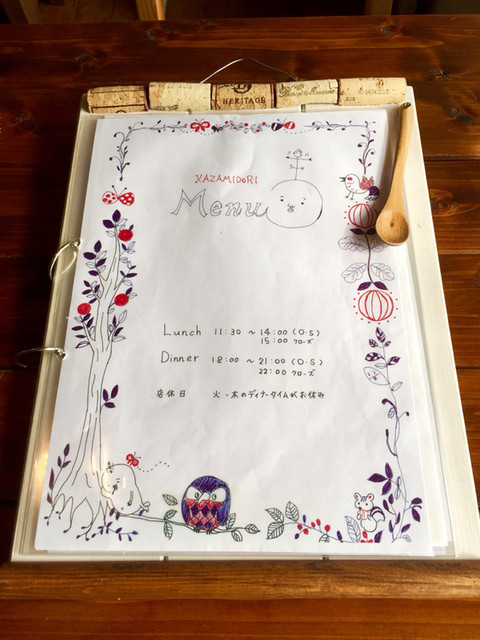 HERITAGE
KAZAMIDORI
Menu
Lunch 11:30 ~ 14:00 (O·S)
15:00 クローズ
Dinner 18:00 ~ 21:00 (O·S)
22:00 クローズ
店休日 火・木のディナータイムがお休み